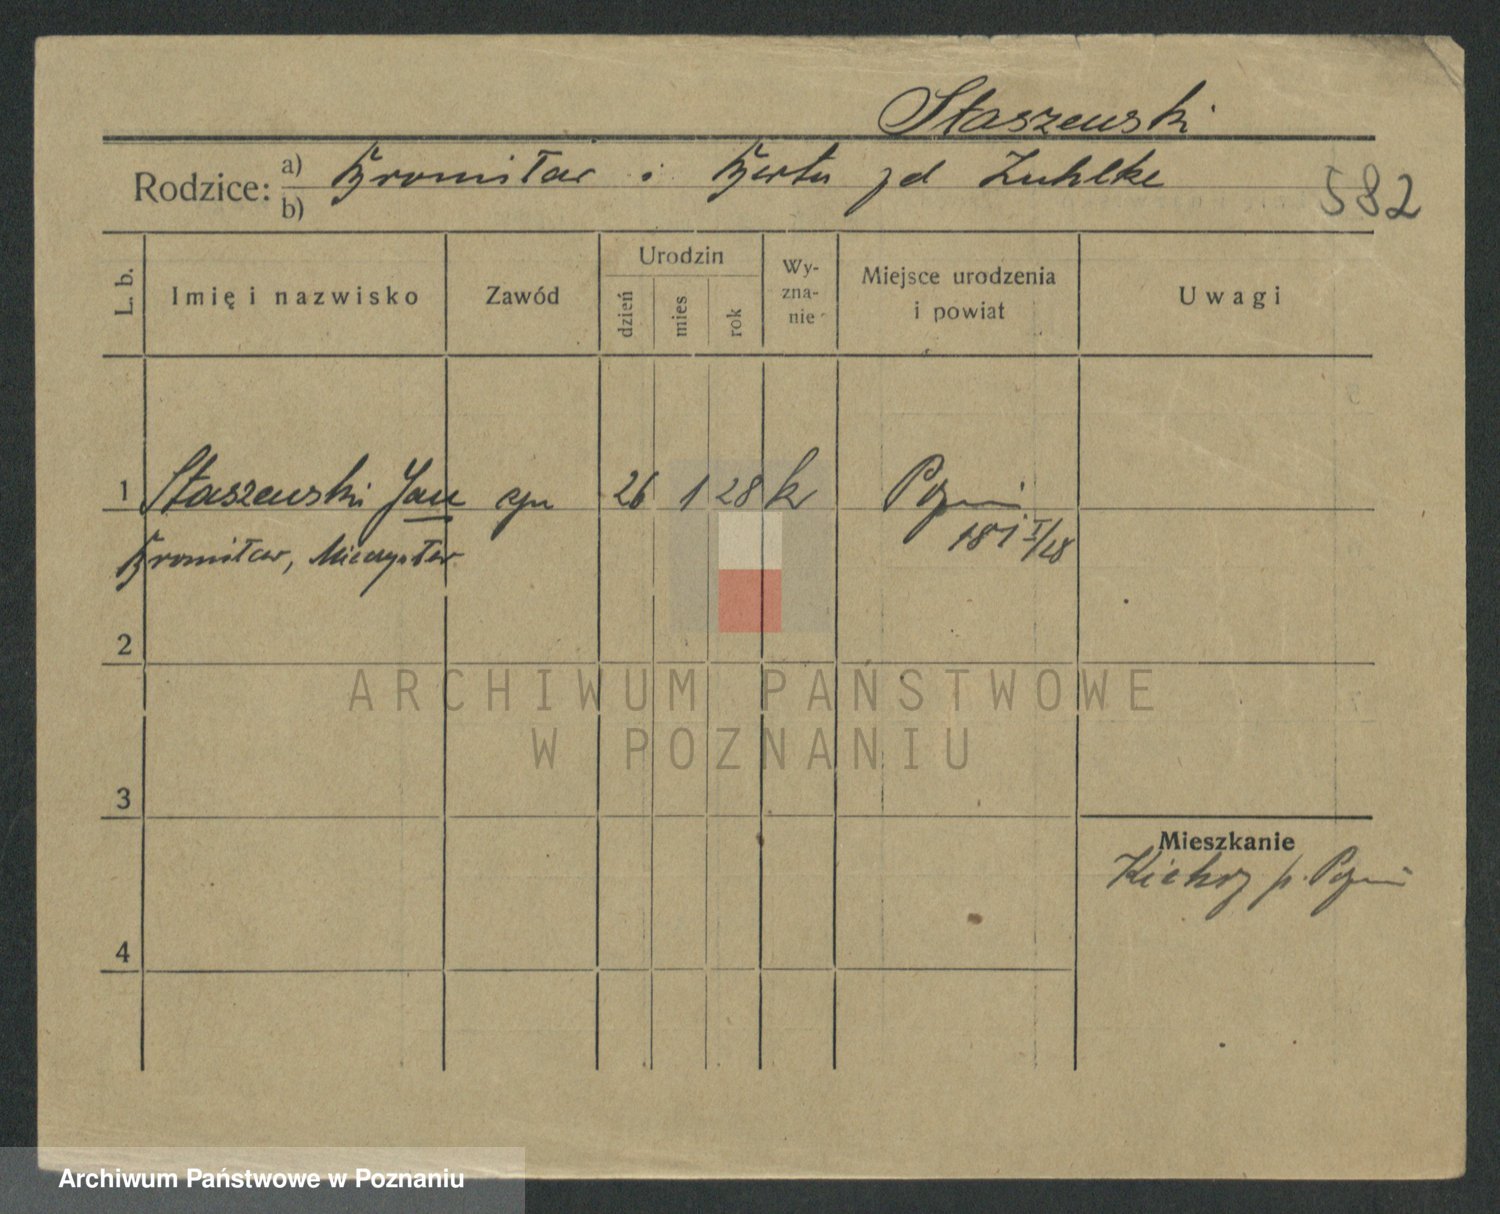 Staszewski
Rodzice: a) Bronisław i Berta zd Zuhlke
b)
582
L. b. Imię i nazwisko Zawód Urodzin dzień mies rok Wy-zna-nie Miejsce urodzenia i powiat Uwagi
1 Staszewski Jan syn 26 1 28 k Pozn
181 I/28
Bronisław, Mieczysław
2
ARCHIWUM PAŃSTWOWE
W POZNANIU
3
Mieszkanie
Kiekrz p. Pozn
4
Archiwum Państwowe w Poznaniu